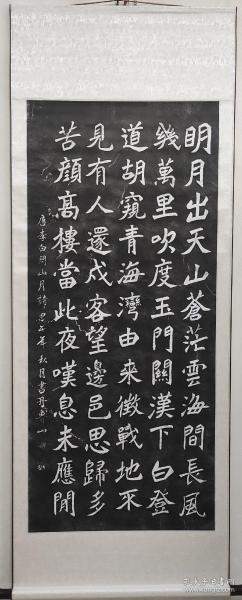 明月出天山蒼茫雲海間長風
幾萬里吹度玉門關漢下白登
道胡窺青海灣由來徵戰地不
見有人還戍客望邊邑思歸多
苦顏高樓當此夜嘆息未應閒
唐李白關山月詩 年秋月書